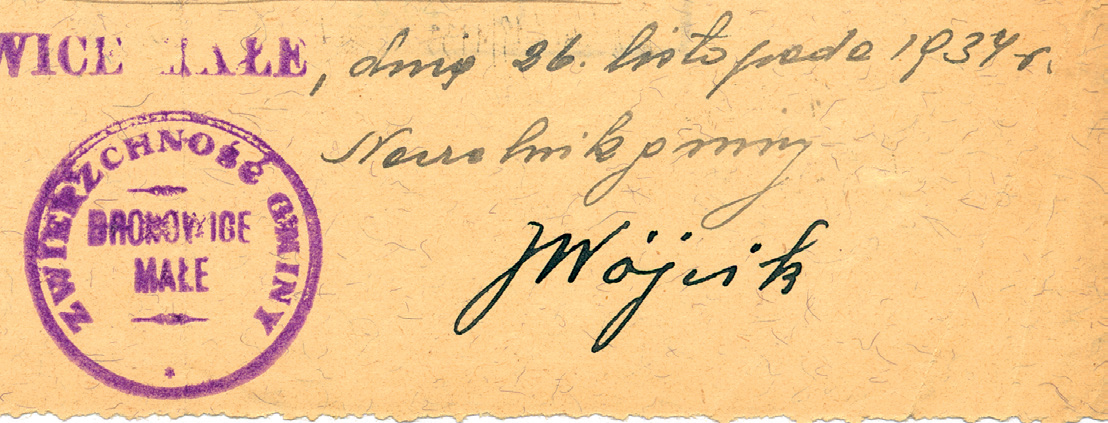 WICE MAŁE, dnia 26. listopada 1934 r.
Naczelnik gminy
JWójcik
ZWIERZCHNOŚĆ GMINY
BRONOWICE
MAŁE
*